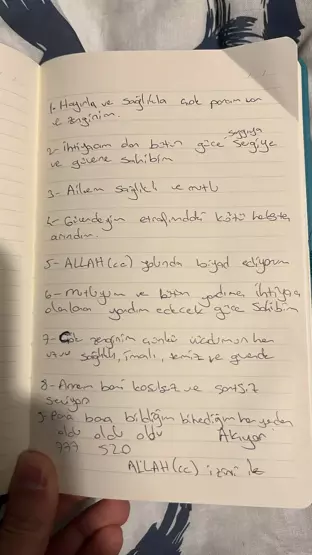 1- Hayırla ve sağlıkla çok param var
ve zenginim.
2- ihtiyacım olan bütün güce saygıya Sevgiye
ve güvene sahibim
3- Ailem sağlıklı ve mutlu
4- Güvendeyim etrafımdaki kötü herkesten
arındım.
5- ALLAH (cc) yolunda ediyorum
6- mutluyum ve bütün yardıma ihtiyacı
olanlara yardım edecek güce Sahibim
7- Çok zenginim çünkü vücudumun her
sağlıklı, temiz ve güvende
8- Annem beni koşulsuz ve şartsız
seviyor
9- Para bana bildiğim bilmediğim her yerden
oldu oldu oldu Akıyor
777 520
ALLAH (cc) izni ile